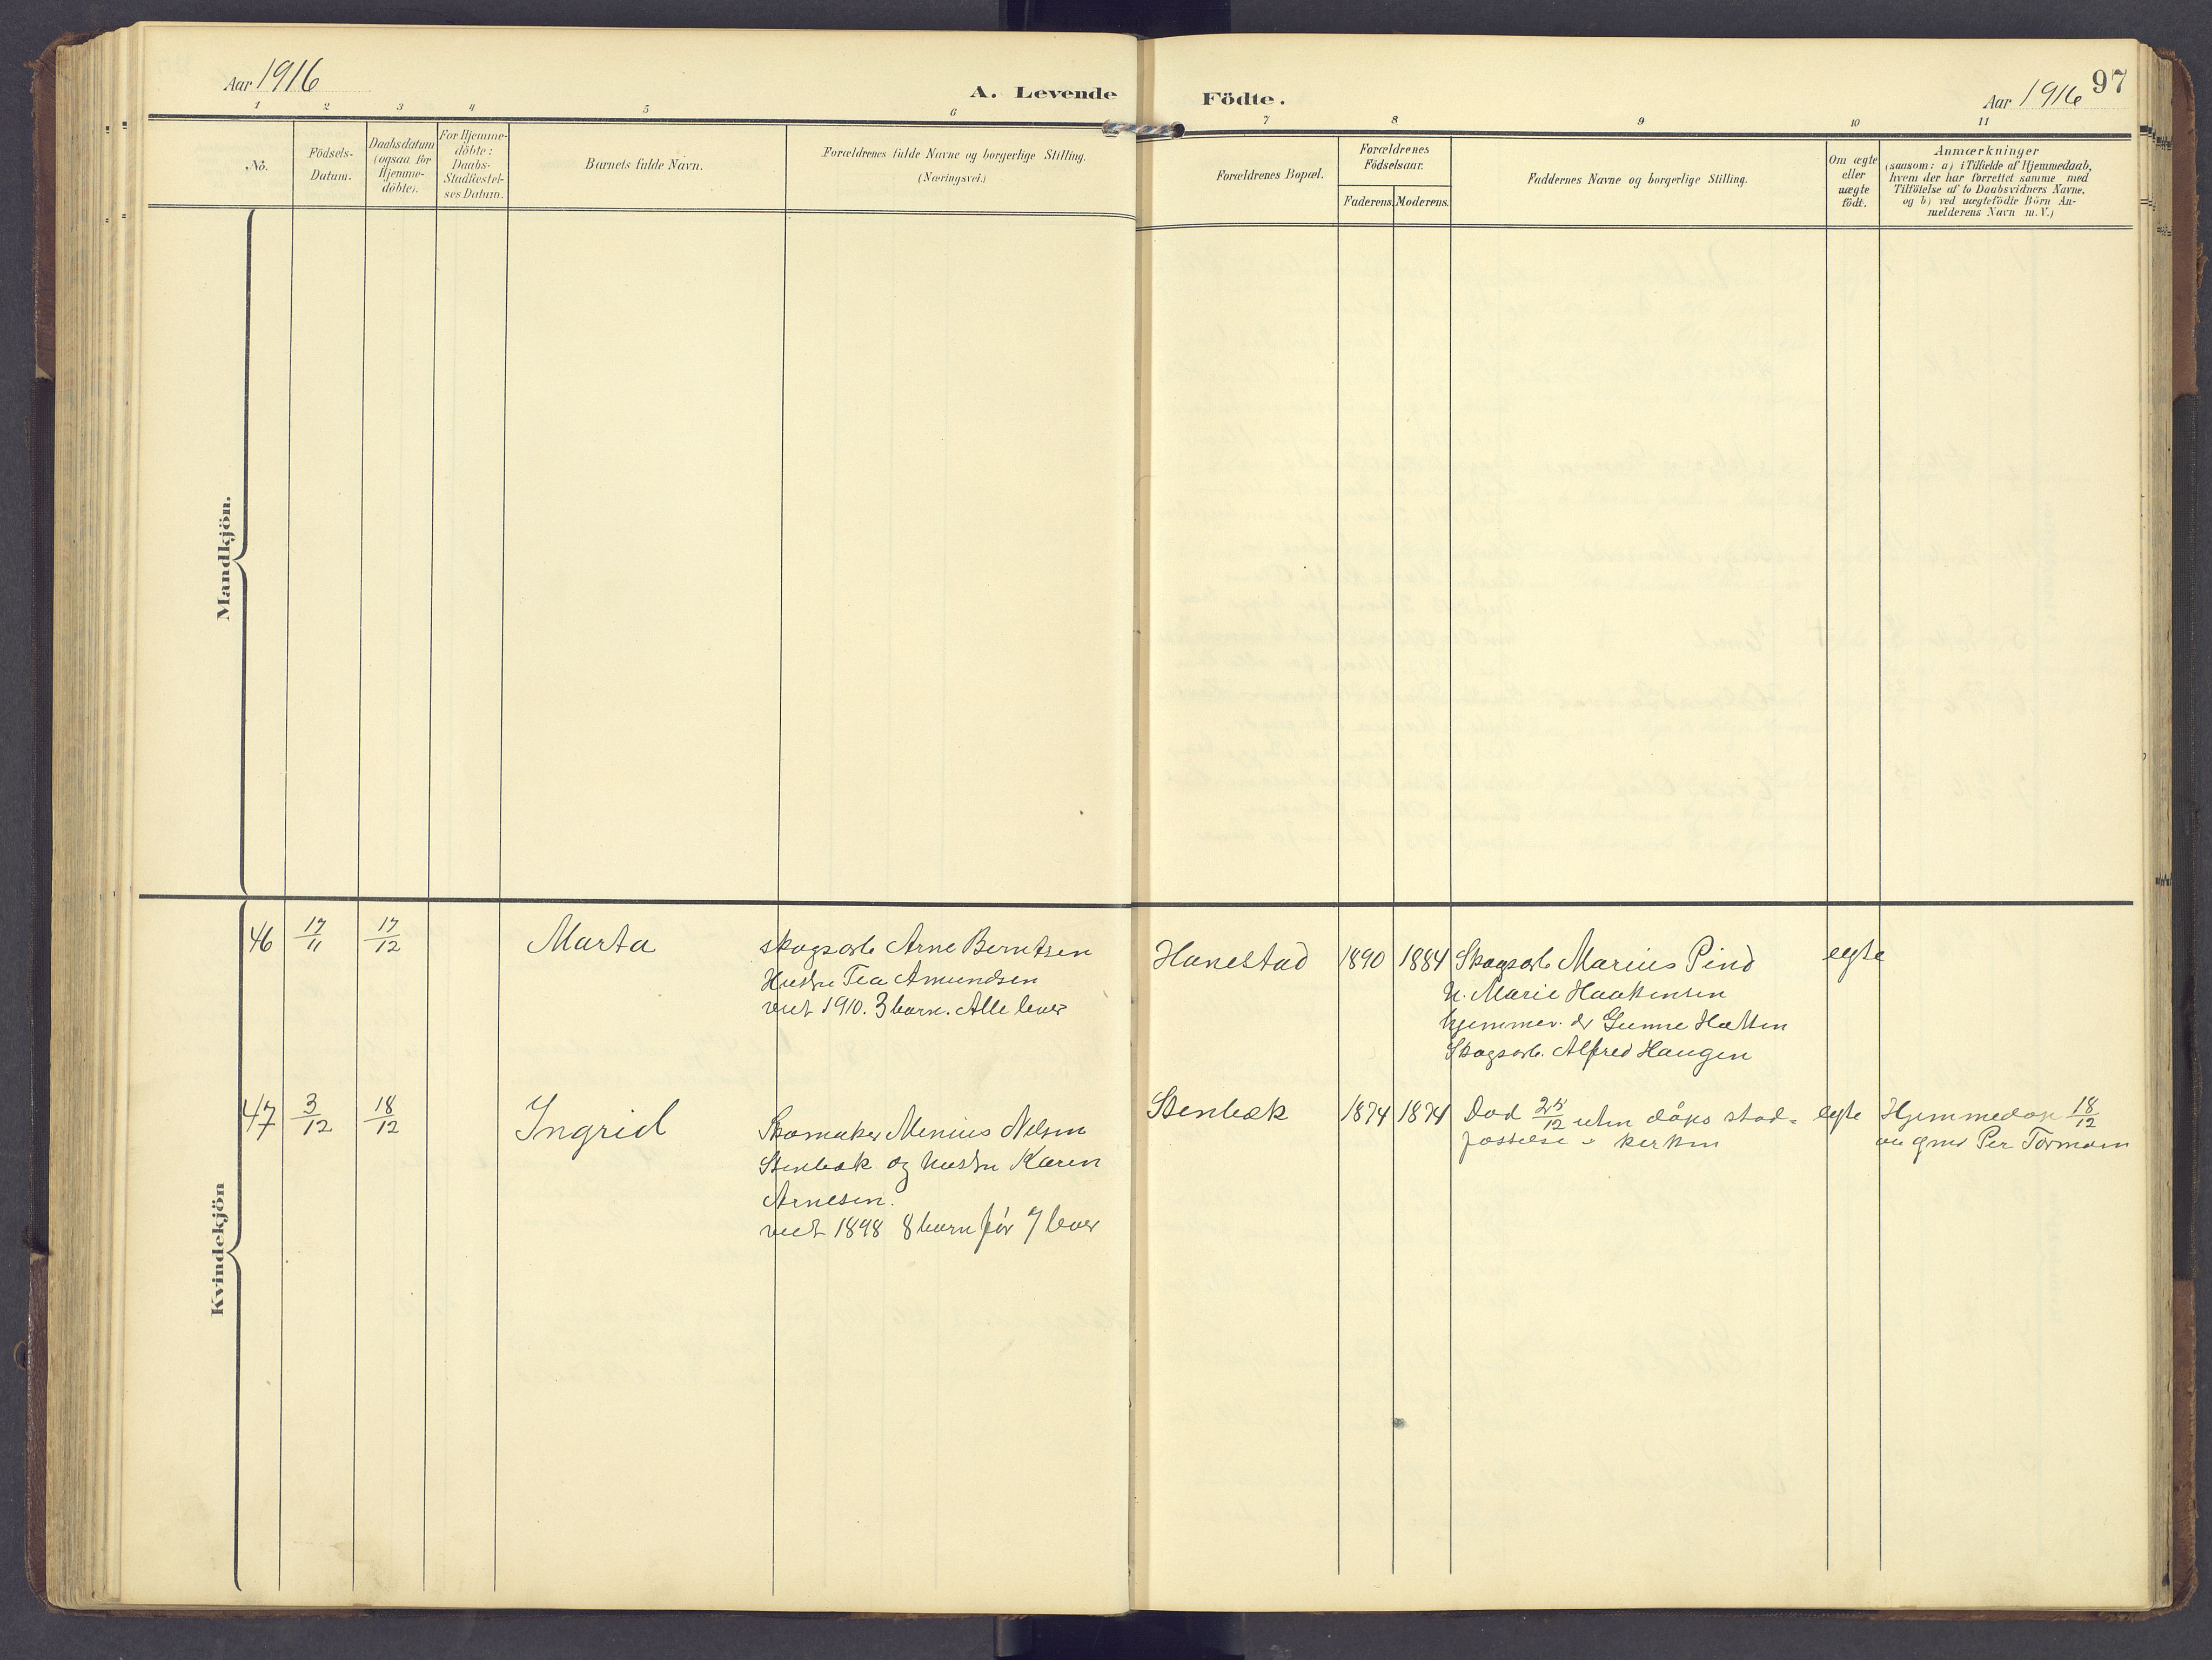 Aar 1916
A. Levende Födte.
Aar 1916
97
1 2 3 4 5 6 7 8 9 10 11
No.
Födsels-
Datum.
Daabsdatum
(ogsaa for
Hjemme-
döbte).
For Hjemme-
döbte:
Daabs-
Stadfæstel-
ses Datum.
Barnets fulde Navn.
Forældrenes fulde Navne og borgerlige Stilling.
(Næringsvei.)
Forældrenes Bopæl.
Forældrenes
Födselsaar.
Faderens. Moderens.
Faddernes Navne og borgerlige Stilling.
Om ægte
eller
uægte
födt.
Anmærkninger
(saasom: a) i Tilfælde af Hjemmedaab,
hvem der har forrettet samme med
Tilföielse af to Daabsvidners Navne,
og b) ved uægtefödte Börn An-
melderens Navn m. V.)
Mandkjön.
Kvindekjön
46
17/11
17/12
Marta
skogsarb Arne Berntsen
Hustru Tea Amundsen
viet 1910. 3 barn. Alle lever
Hanestad
1890
1884
Skogsarb Marius Pind
H. Marie Haakensen
hjemmev. dr Gunne Hætten
Skogsarb. Alfred Haugen
egte
47
3/12
18/12
Ingrid
Skomaker Menius Nilsen
Stenbæk og hustru Karen
Arnesen.
viet 1898 8 barn før 7 lever
Stenbæk
1874
1874
Död 25/12 uten dåps stad-
fæstelse i kirken
egte
Hjemmedøp 18/12
av gmd Per Tormoen